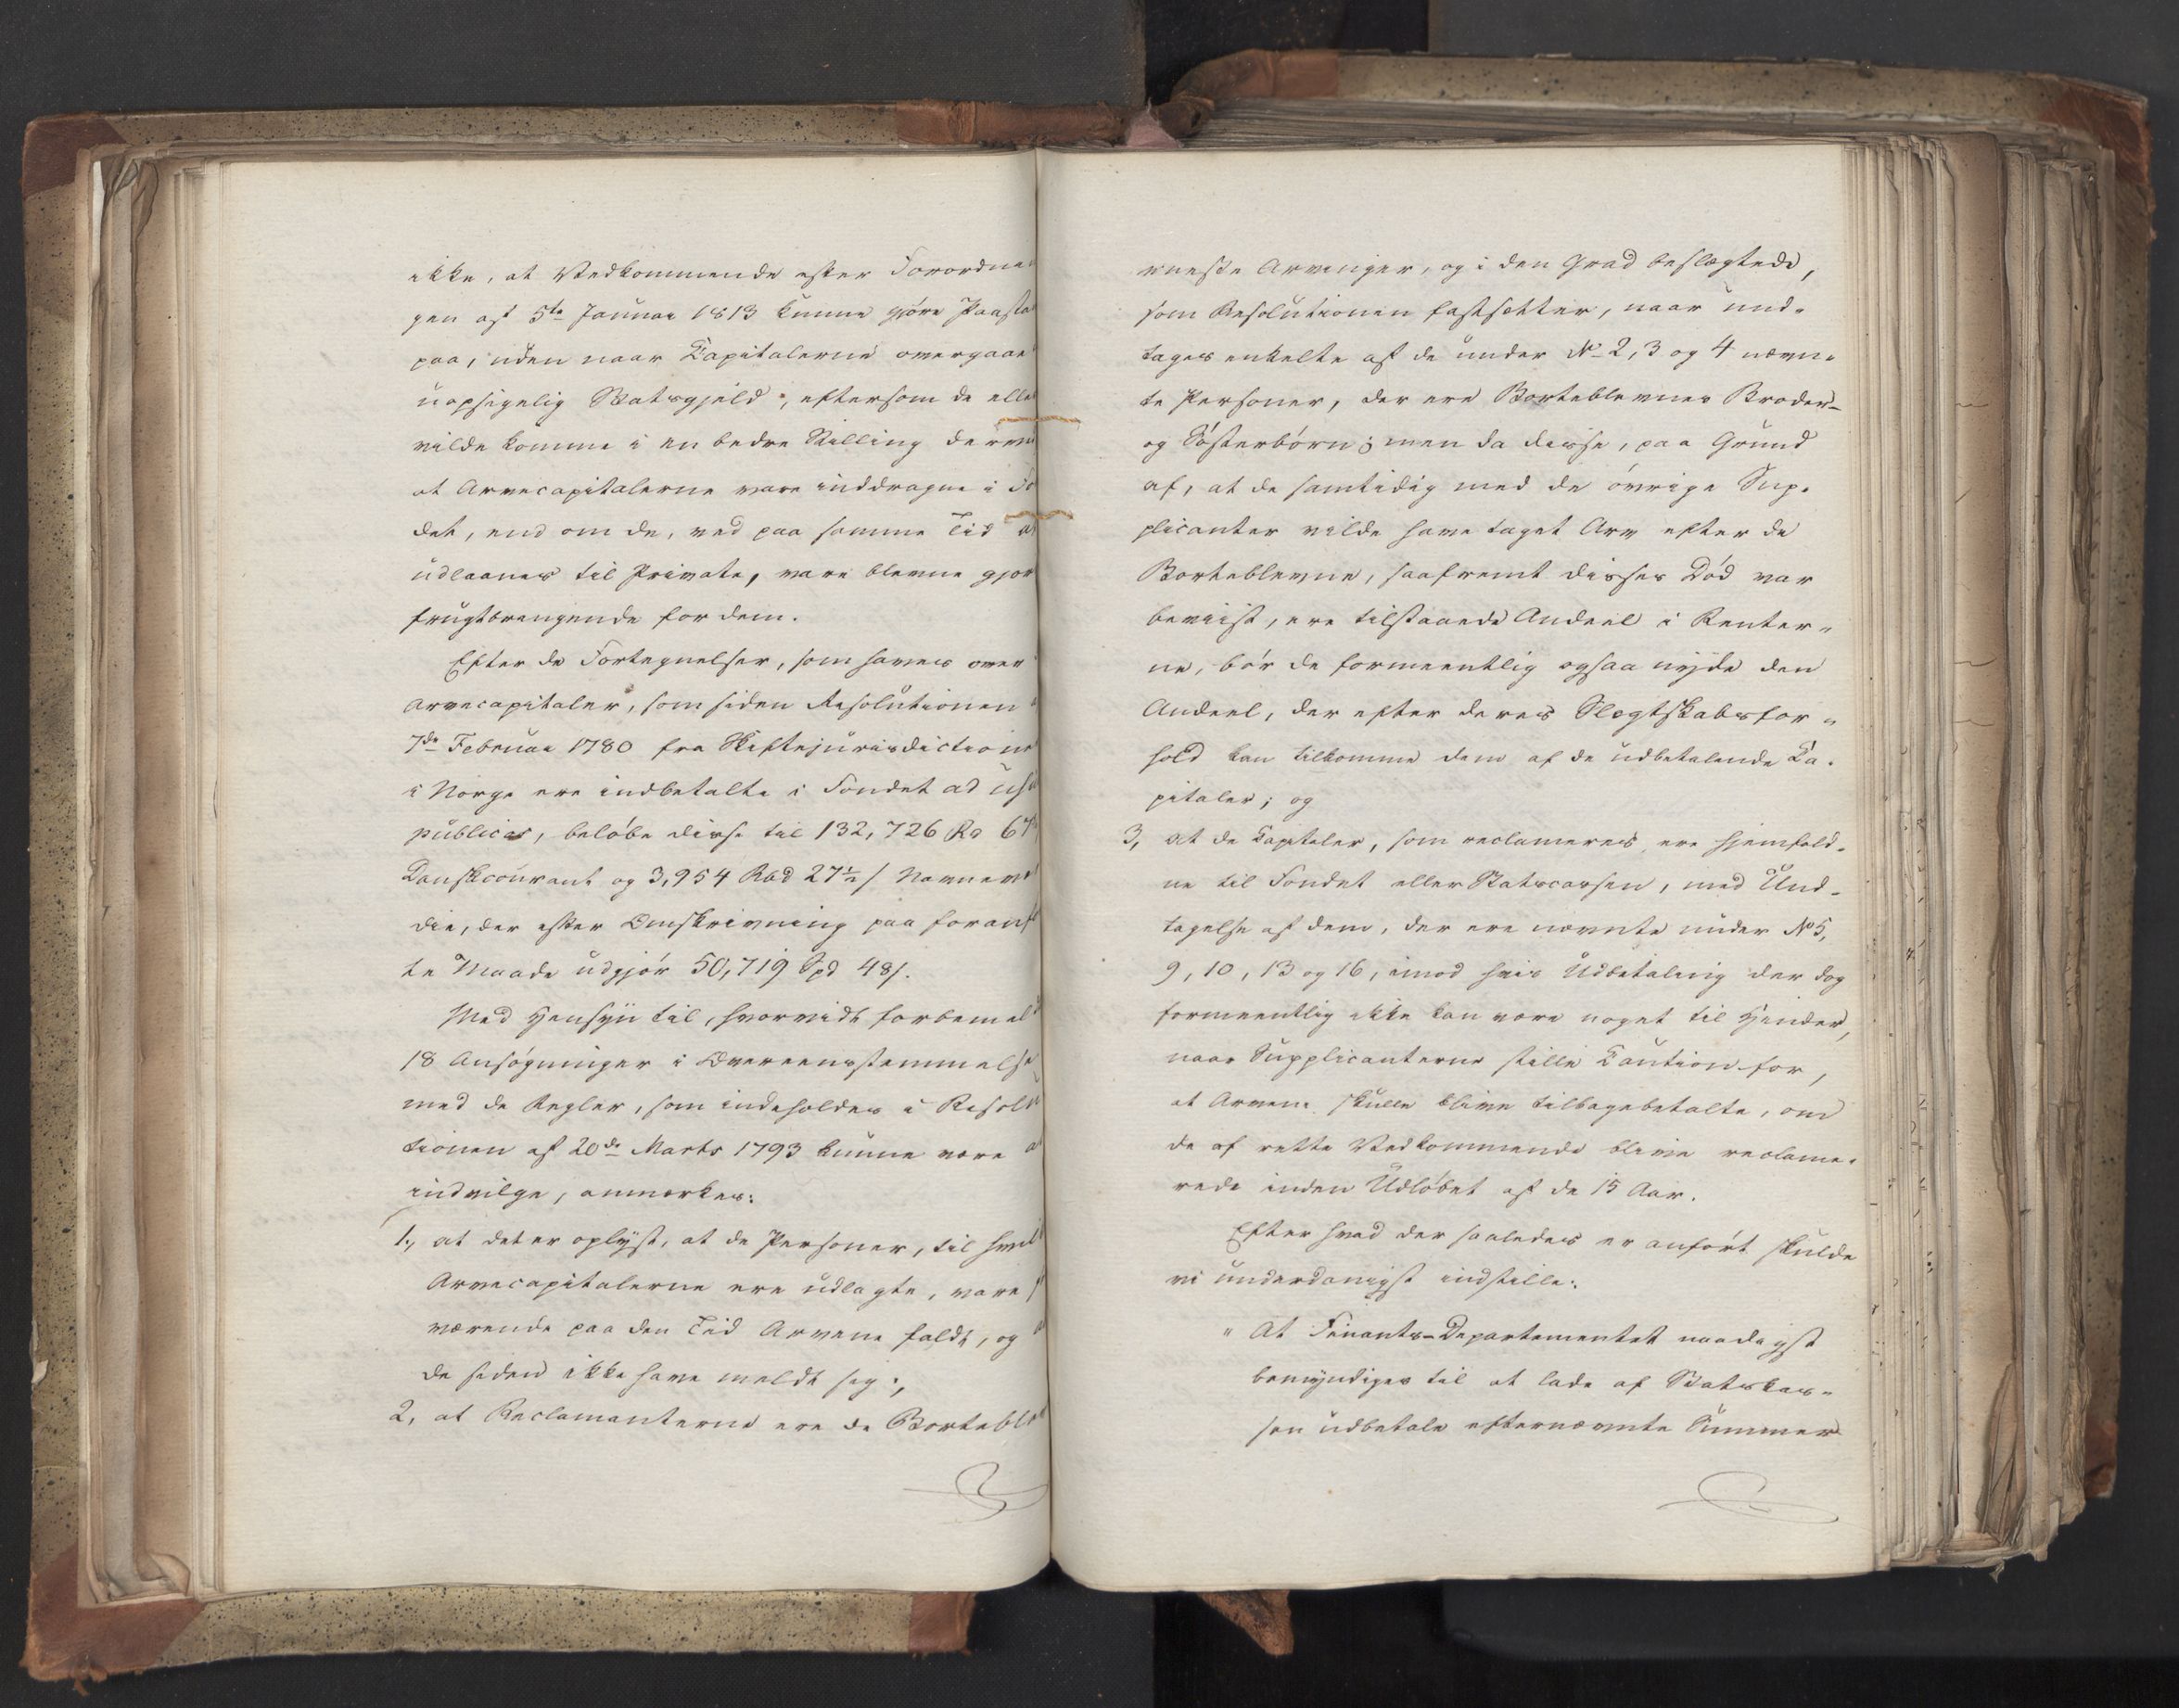 ikke, at Vedkommende efter Forordnin
gen af 5te Januar 1813 kunne gjøre Paasta
paa, uden naar Capitalerne overgaae
uopsigelig Statsgjeld, eftersom de elle
vilde komme i en bedre Stilling derve
at Arvecapitalerne vare inddragne i Fo
det, end om de, ved paa samme Tid a
udlaanes til Private, vare blevne gjor
frugtbringende for dem.
Efter de Fortegnelser, som haves over
Arvecapitaler, som siden Resolutionen a
7de Februar 1780 fra Skiftejurisdictione
i Norge ere indbetalte i Fondet ad usu
publicos, beløbe disse til 132,726 Rd 67
Danskcourant og 3,954 Rbd 27½ s Navnevæ
die, der efter Omskrivning paa foranf
te Maade udgjør 50,719 Spd 48 s.
Med Hensyn til, hvorvidt forbemel
18 Ansøgninger i Overeensstemmelse
med de Regler, som indeholdes i Resolu
tionen af 20de Marts 1793 kunne være a
indvilge, anmærkes:
1., at det er oplyst, at de Personer, til hvil
Arvecapitalerne ere udlagte, vare f
værende paa den Tid Arvene faldt, og a
de siden ikke have meldt sig;,
2, at Reclamanterne ere deBorteble
vneste Arvinger, og i den Grad beslægtede,
som Resolutionen fastsetter, naar und-
tages enkelte af de under No 2, 3 og 4 nævn-
te Personer, der ere Borteblevnes Broder-
og Søsterbørn; men da disse, paa Grund
af, at de samtidig med de øvrige Sup-
plicanter vilde have taget Arv efter de
Borteblevne, saafremt disses Død var
beviist, ere tilstaaede Andeel i Renter-
ne, bør de formeentlig ogsaa nyde den
Andeel, der efter deres Slegtskabsfor-
hold kan tilkomme dem af de udbetalende Ca-
pitaler; og
3, at de Capitaler, som reclameres, ere hjemfald-
ne til Fondet eller Statscassen, med Und-
tagelse af dem, der ere nævnte under No 5,
9, 10, 13 og 16, imod hvis Udbetaling der dog
formeentlig ikke kan være noget til Hinder,
naar Supplicanterne stille Caution for,
at Arvene skulle blive tilbagebetalte, om
de af rette Vedkommende blive reclame-
rede inden Udløbet af de 15 Aar.
Efter hvad der saaledes er anført skulde
vi underdanigst indstille:
" At Finants-Departementet naadigst
bemyndiges til at lade af Statskas-
sen udbetale efternævnte Summer